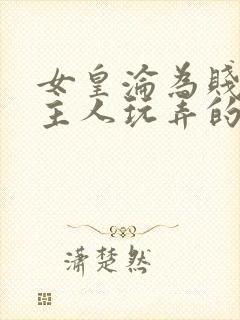 女皇淪為賤
主人玩弄的
瀟楚然